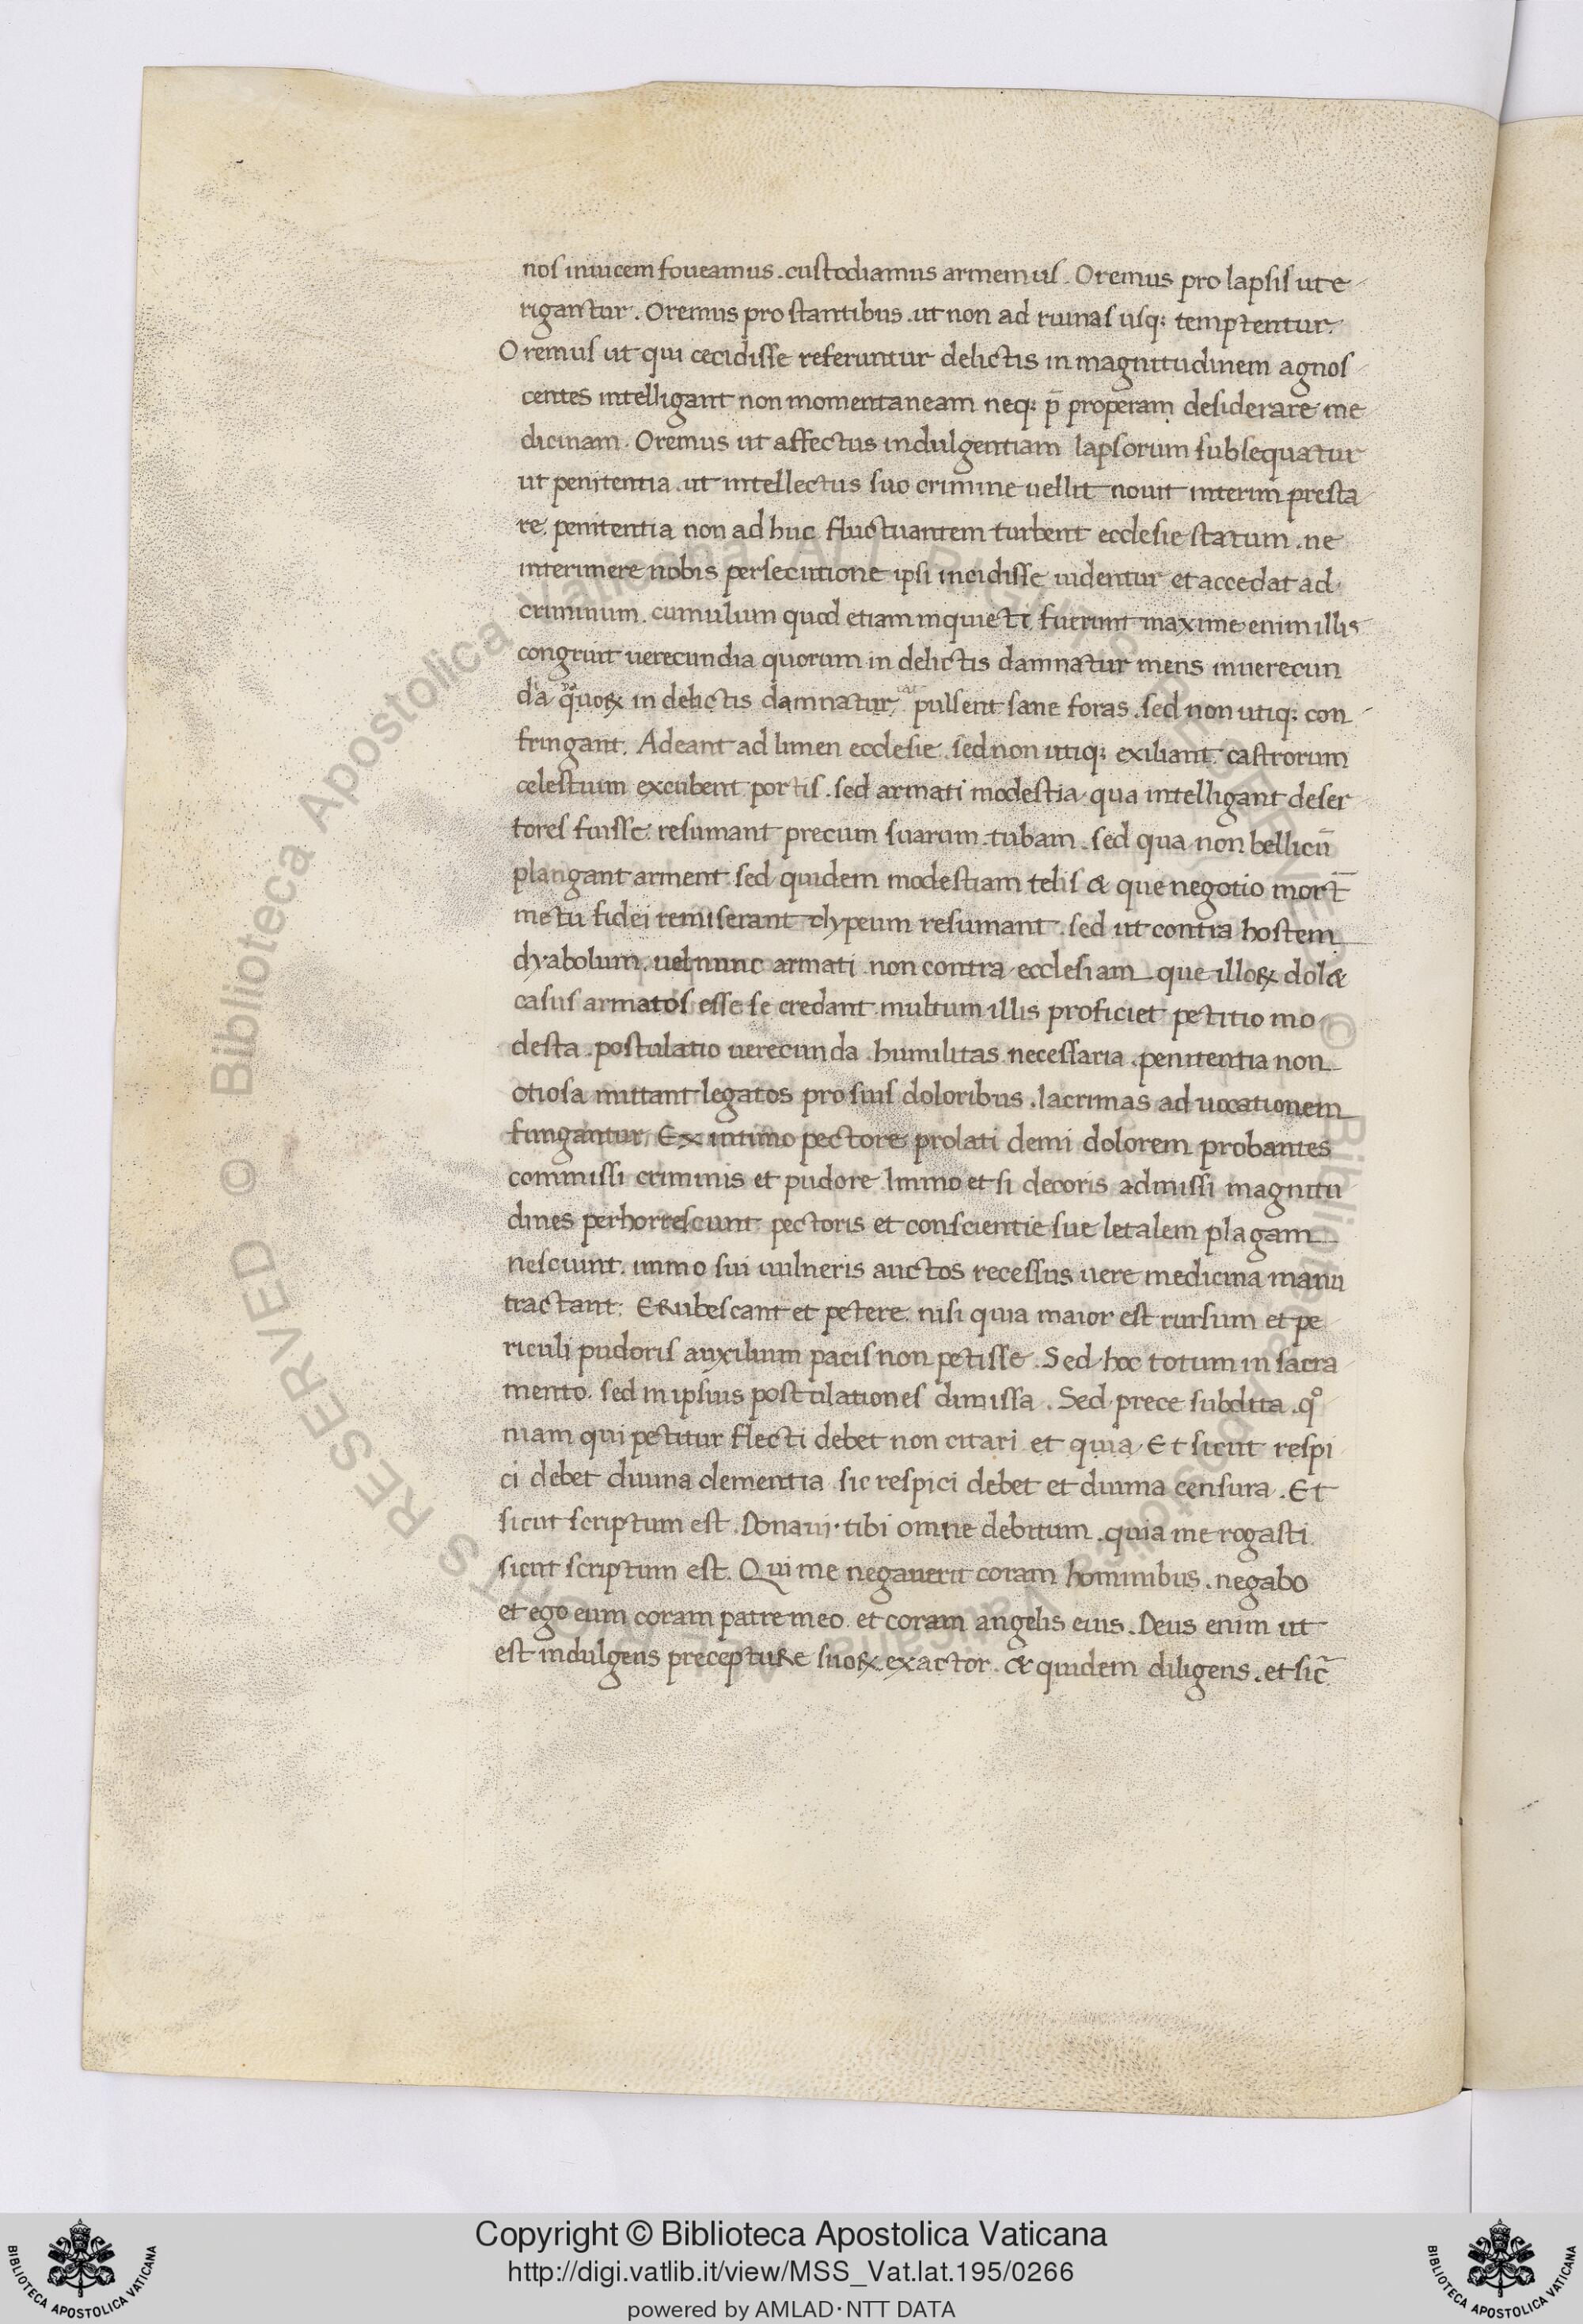 nos inuicem foueamus . custodiamus armemus . Oremus pro lapsis ut e
rigantur . Oremus pro stantibus . ut non ad ruinas usq; temptentur .
Oremus ut qui cecidisse referuntur delictis in magnitudinem agnos
centes intelligant non momentaneam neq; p̄ properam desiderare me
dicinam . Oremus ut affectus indulgentiam lapsorum subsequatur
ut penitentia . ut intellectus suo crimine uellit nouit interim presta
re . penitentia non ad huc fluctuantem turbent ecclesie statum . ne
interimere nobis persecutione ipsi incidisse uidentur et accedat ad
criminum . cumulum quod etiam inquieti fuerunt maxime enim illis
congruit uerecundia quorum in delictis damnatur mens inuerecun
da quoꝝ in delictis damnatur . pulsent sane foras . sed non utiq; con
fringant . Adeant ad limen ecclesie . sed non utiq; exiliant . castrorum
celestium excubent portis . sed armati modestia qua intelligant deser
tores fuisse . resumant precum suarum tubam . sed qua non bellicū
plangant arment sed quidem modestiam telis & que negotio mort̄
metu fidei remiserant clypeum resumant . sed ut contra hostem
dyabolum . uel nunc armati non contra ecclesiam que illoꝝ dol&
casus armatos esse se credant multum illis proficiet petitio mo
desta . postulatio uerecunda . humilitas necessaria . penitentia non
otiosa mittant legatos pro suis doloribus . lacrimas ad uocationem
fungantur . Ex intimo pectore prolati demi dolorem probantes
commissi criminis et pudore Immo et si decoris admissi magnitu
dines perhorrescunt pectoris et conscientie sue letalem plagam
nesciunt . immo sui uulneris auctos recessus uere medicina manu
tractant . Erubescant et petere . nisi quia maior est rursum et pe
riculi pudoris auxilium pacis non petisse . Sed hoc totum in sacra
mento . sed in ipsius postulationes dimissa . Sed prece subdita . qº
niam qui petitur flecti debet non citari et quia Et sicut respi
ci debet diuina clementia sic respici debet et diuina censura . Et
sicut scriptum est . Donaui tibi omne debitum . quia me rogasti
sicut scriptum est . Qui me negauerit coram hominibus . negabo
et ego eum coram patre meo . et coram angelis eius . Deus enim ut
est indulgens precepture suoꝝ exactor . & quidem diligens . et sic̄
Copyright © Biblioteca Apostolica Vaticana
http://digi.vatlib.it/view/MSS_Vat.lat.195/0266
powered by AMLAD·NTT DATA
BIBLIOTECA APOSTOLICA VATICANA
BIBLIOTECA APOSTOLICA VATICANA